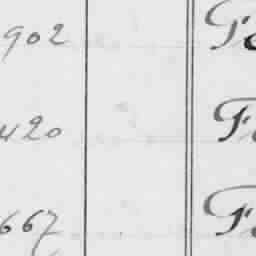 902 Fe
420 Fe
667 Fe